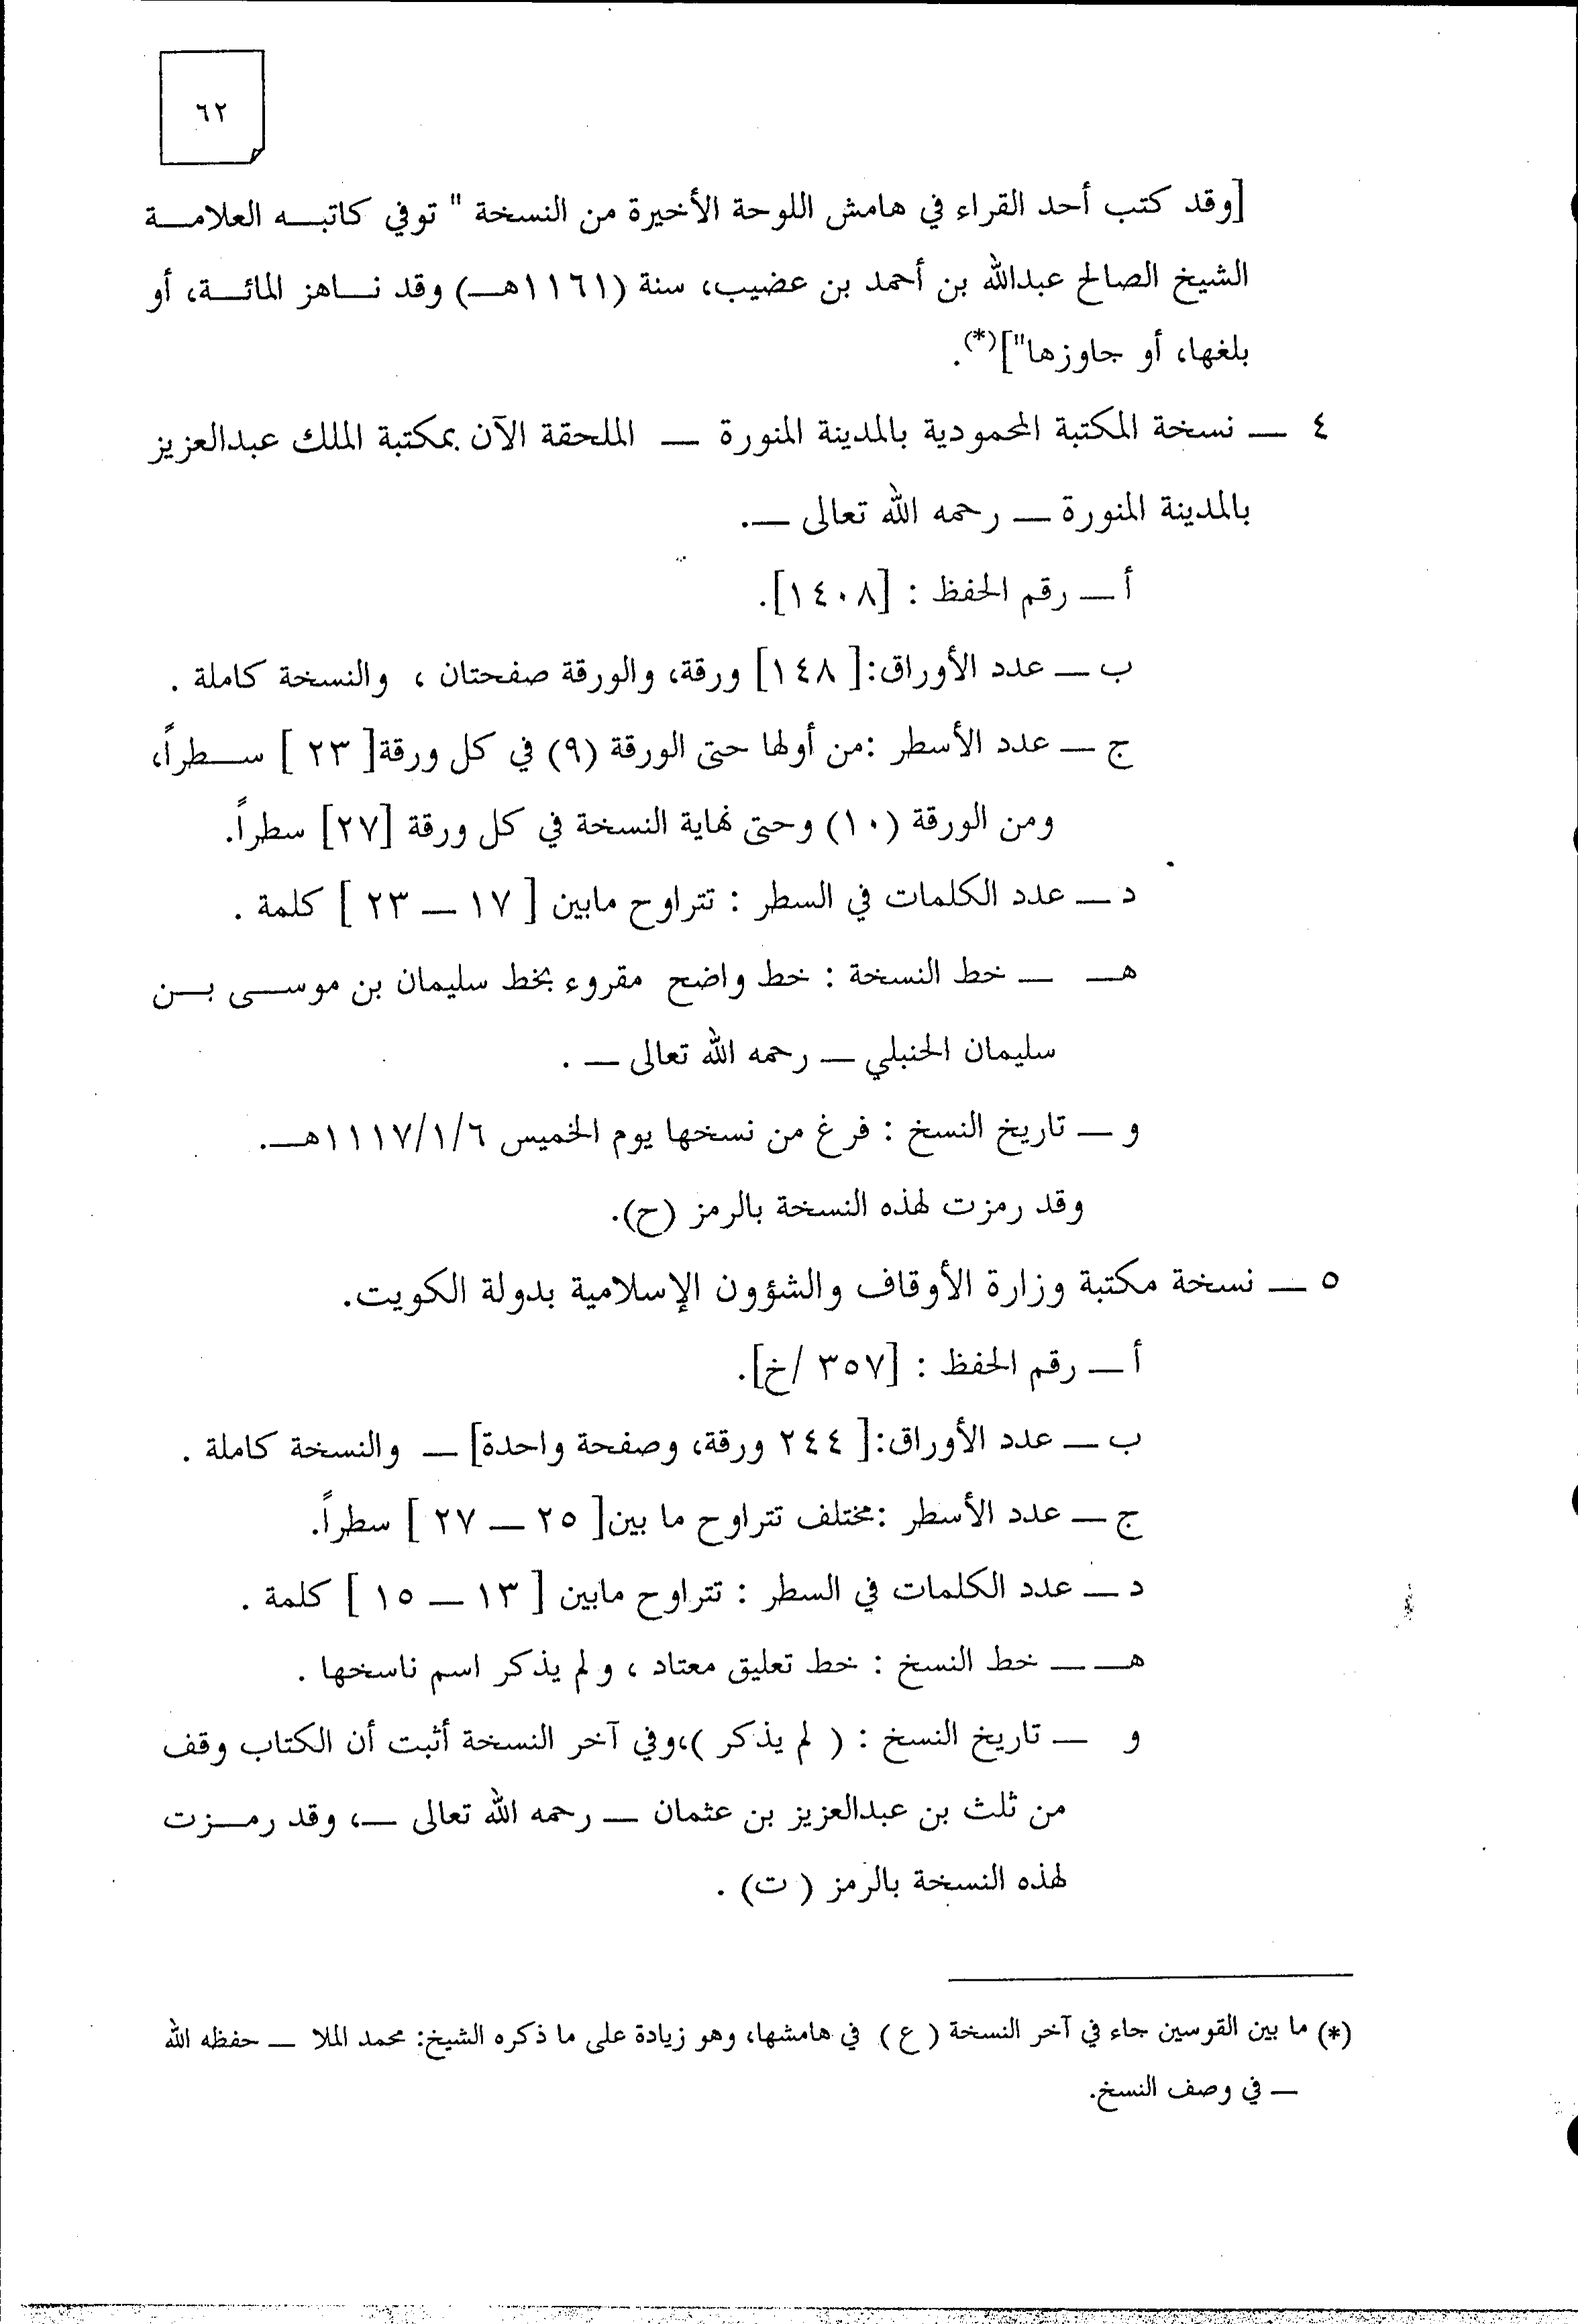 ٦٢
[وقد كتب أحد القراء في هامش اللوحة الأخيرة من النسخة " توفي كاتبه العلامة
الشيخ الصالح عبدالله بن أحمد بن عضيب، سنة (١١٦١هـ) وقد ناهز المائة، أو
بلغها، أو جاوزها"](*).
٤ ـ نسخة المكتبة المحمودية بالمدينة المنورة ـ الملحقة الآن بمكتبة الملك عبدالعزيز
بالمدينة المنورة ـ رحمه الله تعالى ـ.
أ ـ رقم الحفظ : [١٤٠٨].
ب ـ عدد الأوراق:[ ١٤٨] ورقة، والورقة صفحتان ، والنسخة كاملة .
ج ـ عدد الأسطر :من أولها حتى الورقة (٩) في كل ورقة[ ٢٣ ] سطراً،
ومن الورقة (١٠) وحتى نهاية النسخة في كل ورقة [٢٧] سطراً.
د ـ عدد الكلمات في السطر : تتراوح مابين [ ١٧ ـ ٢٣ ] كلمة .
هـ ـ خط النسخة : خط واضح مقروء بخط سليمان بن موسى بن
سليمان الحنبلي ـ رحمه الله تعالى ـ .
و ـ تاريخ النسخ : فرغ من نسخها يوم الخميس ١١١٧/١/٦هـ.
وقد رمزت لهذه النسخة بالرمز (ح).
٥ ـ نسخة مكتبة وزارة الأوقاف والشؤون الإسلامية بدولة الكويت.
أ ـ رقم الحفظ : [٣٥٧ /خ].
ب ـ عدد الأوراق:[ ٢٤٤ ورقة، وصفحة واحدة] ـ والنسخة كاملة .
ج ـ عدد الأسطر :مختلف تتراوح ما بين[ ٢٥ ـ ٢٧ ] سطراً.
د ـ عدد الكلمات في السطر : تتراوح مابين [ ١٣ ـ ١٥ ] كلمة .
هـ ـ خط النسخ : خط تعليق معتاد ، ولم يذكر اسم ناسخها .
و ـ تاريخ النسخ : ( لم يذكر )،وفي آخر النسخة أثبت أن الكتاب وقف
من ثلث بن عبدالعزيز بن عثمان ـ رحمه الله تعالى ـ، وقد رمزت
لهذه النسخة بالرمز ( ت) .
(*) ما بين القوسين جاء في آخر النسخة ( ع ) في هامشها، وهو زيادة على ما ذكره الشيخ: محمد الملا ـ حفظه الله
ـ في وصف النسخ.